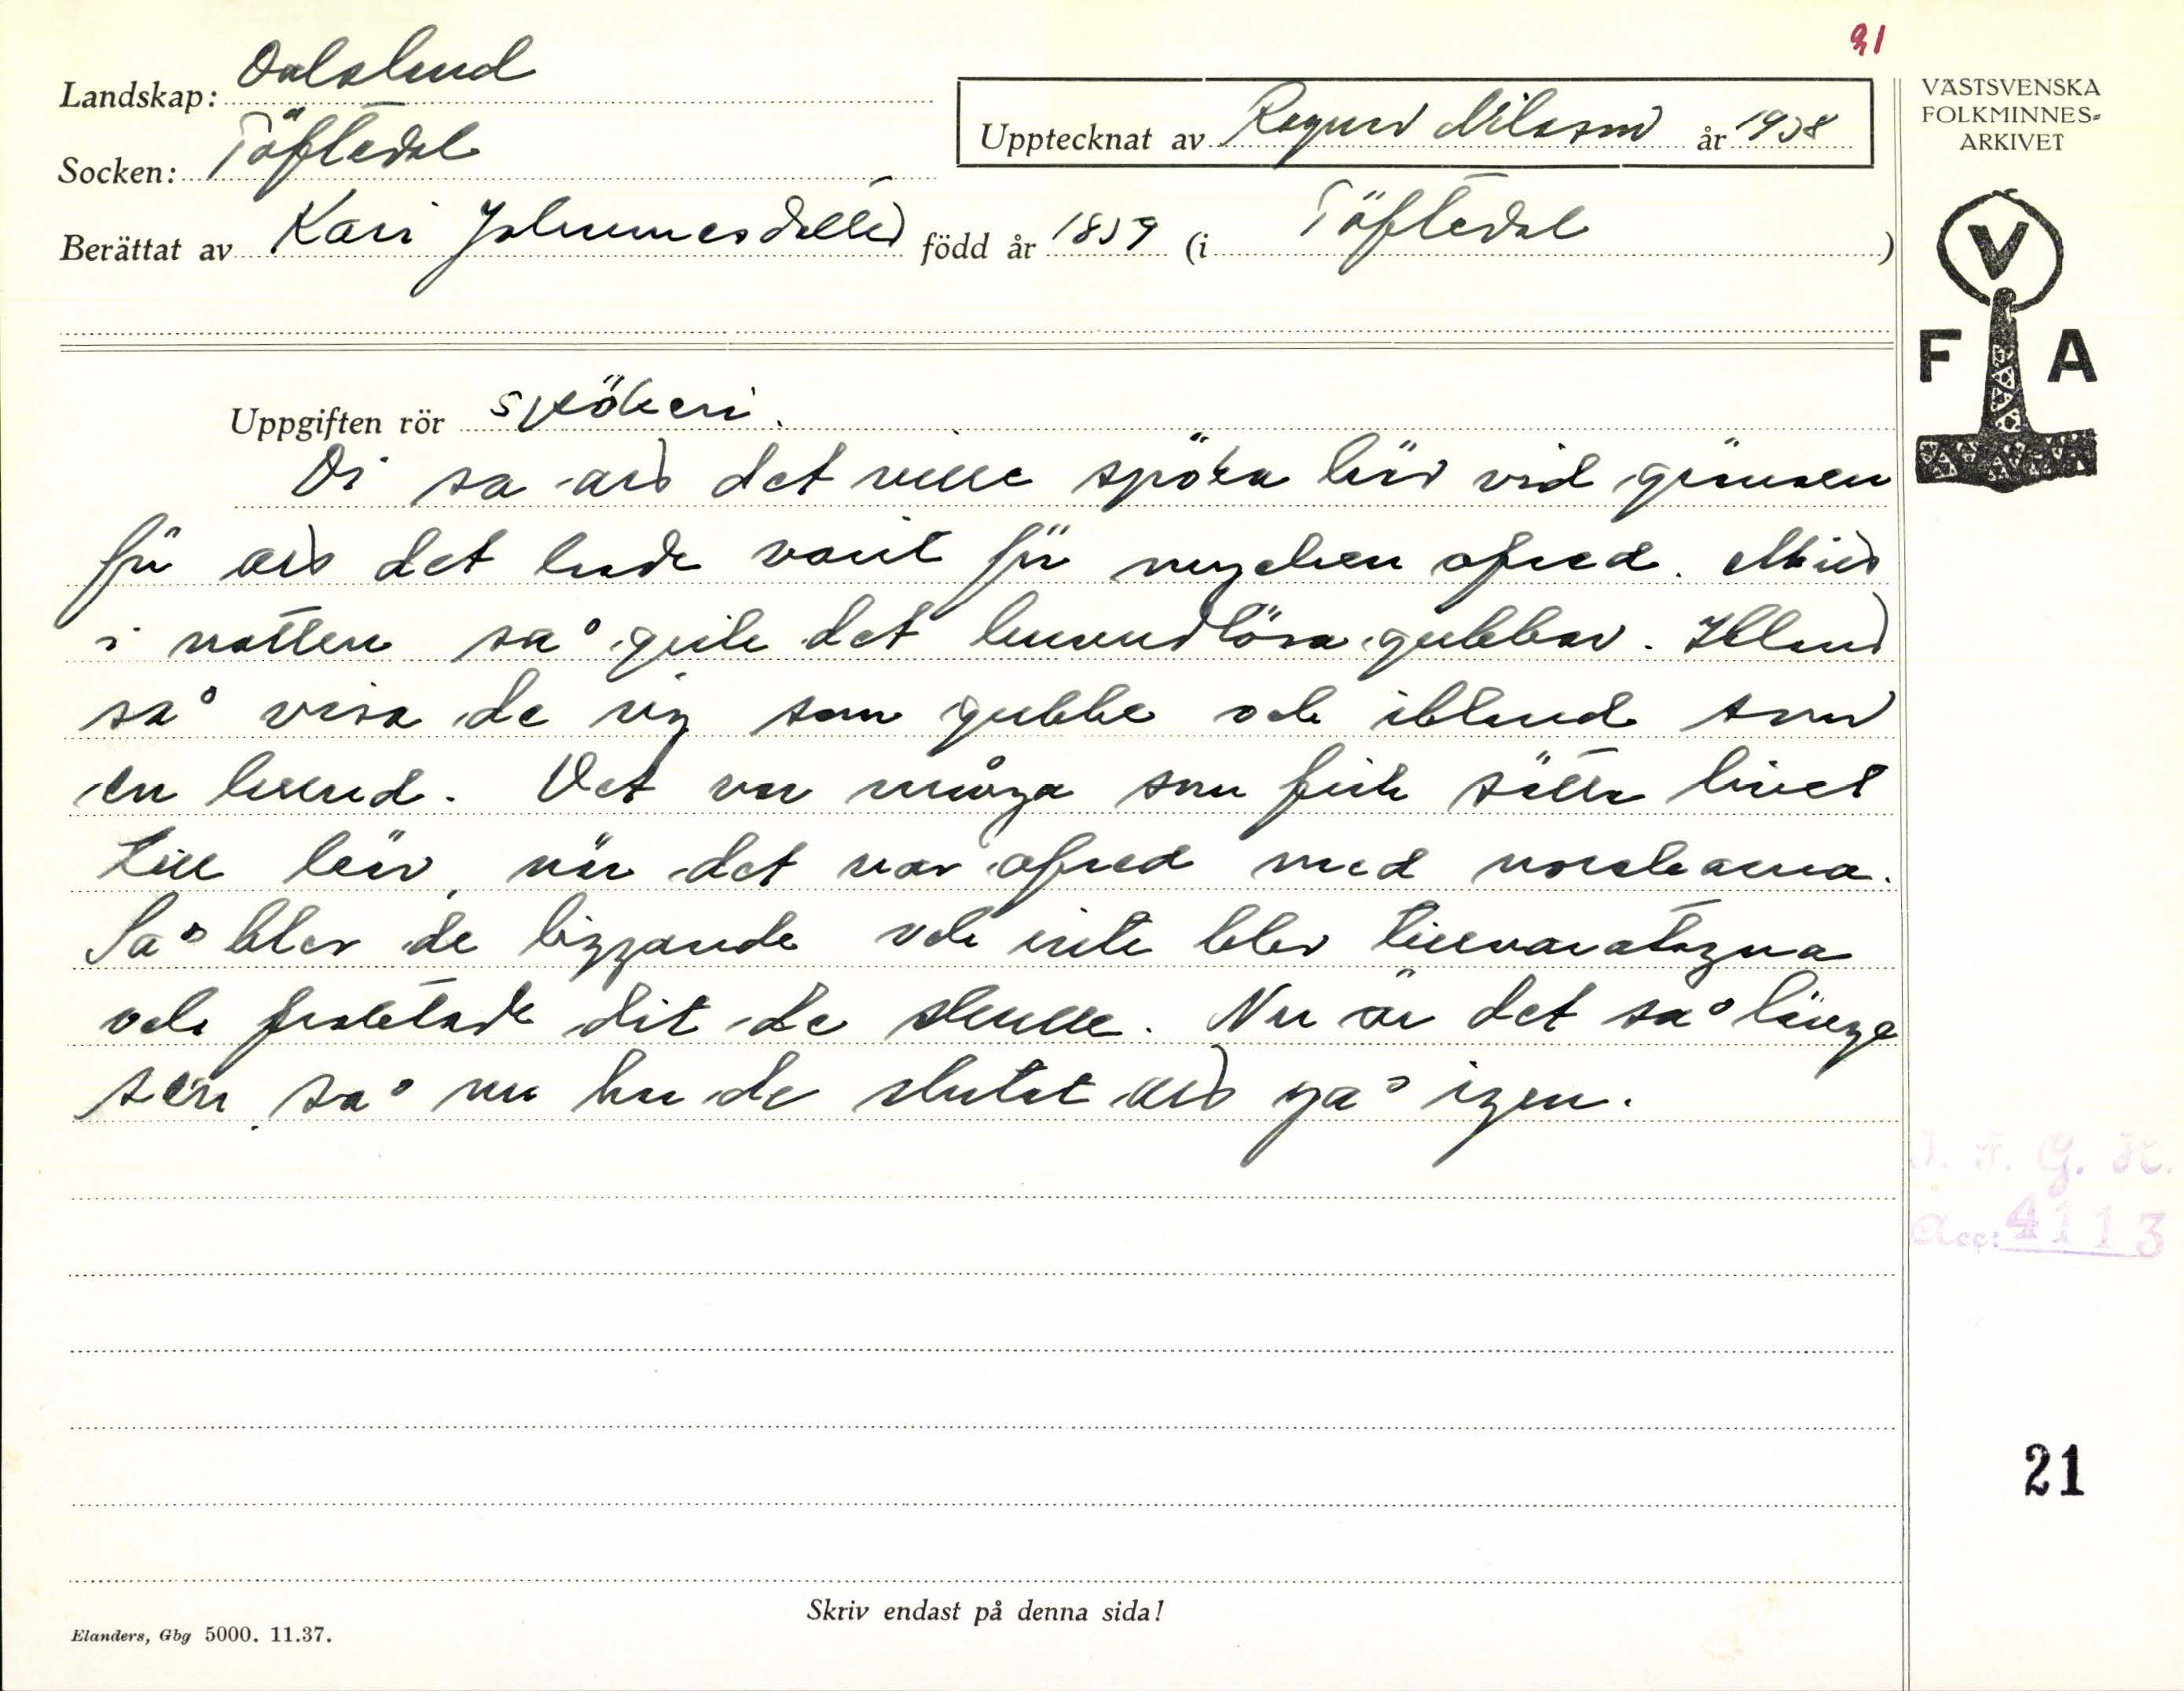 21
Landskap: Dalsland
Socken: Töftedal
Upptecknat av Ragnar Nilsson år 1938
Berättat av Kari Johannesdotter född år 1859 (i Töftedal)
VÄSTSVENSKA
FOLKMINNES-
ARKIVET
V
F A
Uppgiften rör spökeri.
Di sa att det ville spöka här vid gränsen
för att det hade varit för mycken ofred. Mitt
i natten så gick det huvudlösa gubbar. Ibland
så visa de sig som gubbe och ibland som
en hund. Det var många som fick sätta livet
till här, när det var ofred med norskarna.
Så blev de liggande och inte blev tillvaratagna
och fraktade dit de skulle. Nu är det så länge
sen, så nu har de slutat att gå igen.
I. F. G. H.
Acc: 4113
21
Skriv endast på denna sida!
Elanders, Gbg 5000. 11.37.